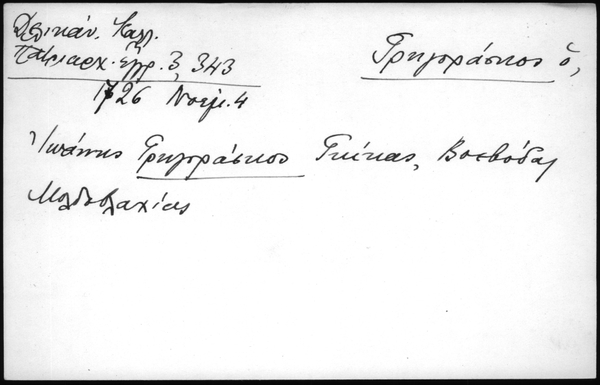 Δελικάν. Καλλ.
Πατριαρχ. έγγρ. 3, 343
1726 Νοεμ. 4
Γρηγοράσκος ὁ,
Ἰωάννης Γρηγοράσκος Γκίκας, Βοεβόδας
Μολδοβλαχίας